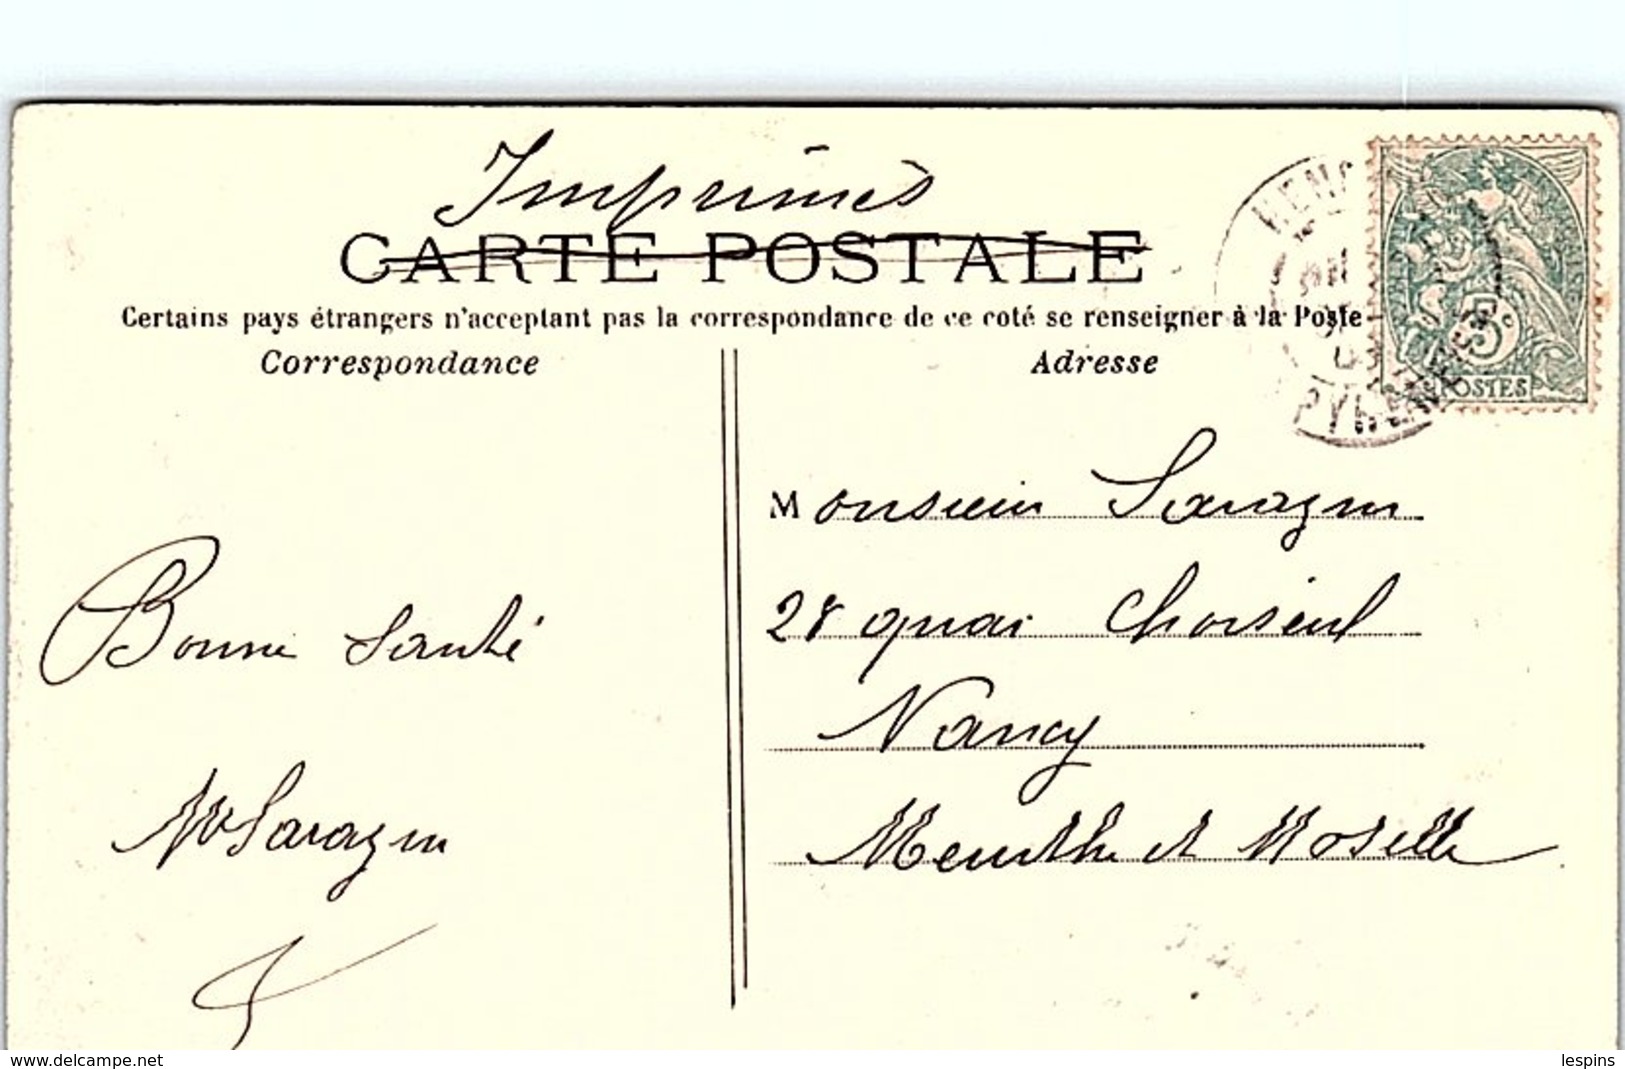 Imprimés
CARTE POSTALE
Certains pays étrangers n'acceptant pas la correspondance de ce coté se renseigner à la Poste
Correspondance
Adresse
5c
POSTES
PYRENEES
Monsieur Sarazin
28 quai Choiseul
Nancy
Meurthe et Moselle
Bonne Santé
Sarazin
www.delcampe.net
lespins